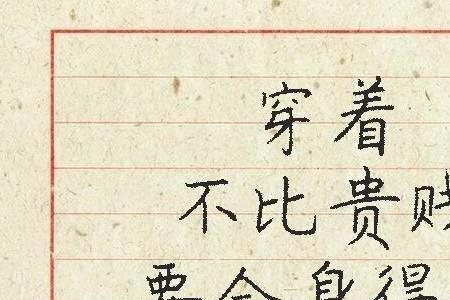 穿着
不比贵贱
要合身得